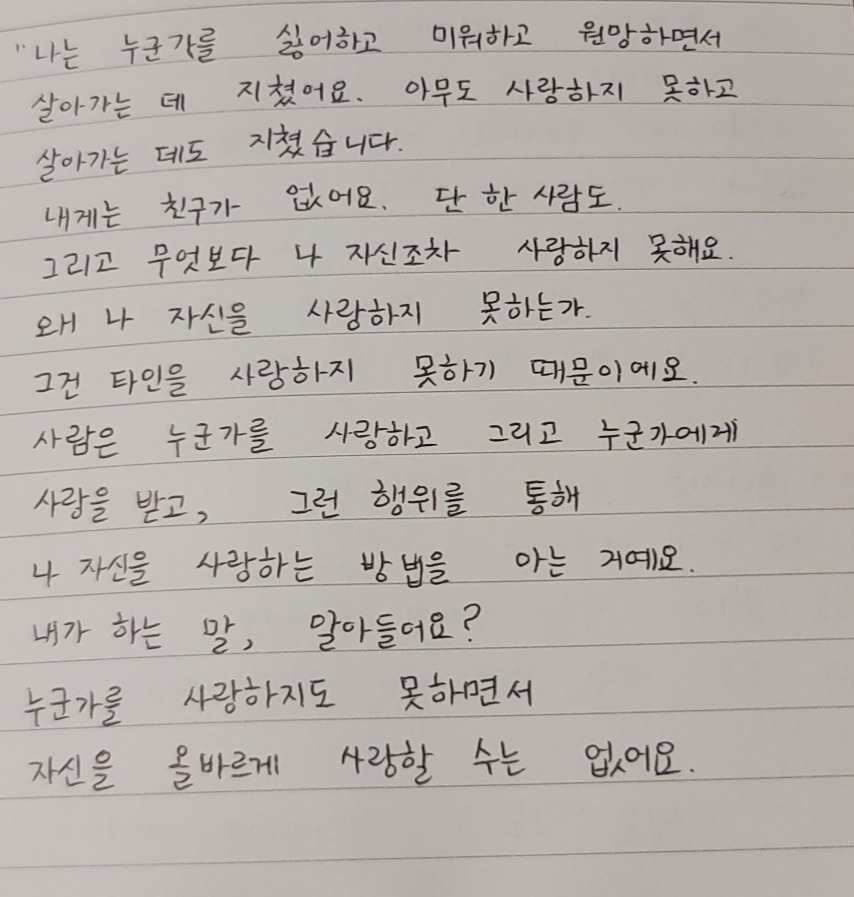 "나는 누군가를 싫어하고 미워하고 원망하면서
살아가는 데 지쳤어요. 아무도 사랑하지 못하고
살아가는 데도 지쳤습니다.
내게는 친구가 없어요. 단 한 사람도.
그리고 무엇보다 나 자신조차 사랑하지 못해요.
왜 나 자신을 사랑하지 못하는가.
그건 타인을 사랑하지 못하기 때문이에요.
사람은 누군가를 사랑하고 그리고 누군가에게
사랑을 받고, 그런 행위를 통해
나 자신을 사랑하는 방법을 아는 거예요.
내가 하는 말, 알아들어요?
누군가를 사랑하지도 못하면서
자신을 올바르게 사랑할 수는 없어요.